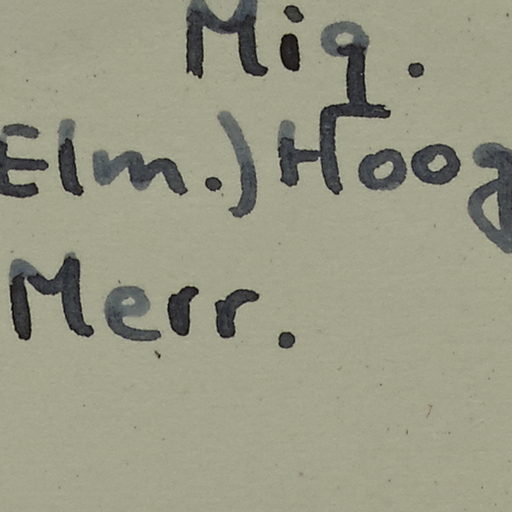 Miq.
Elm.) Hoog
Merr.